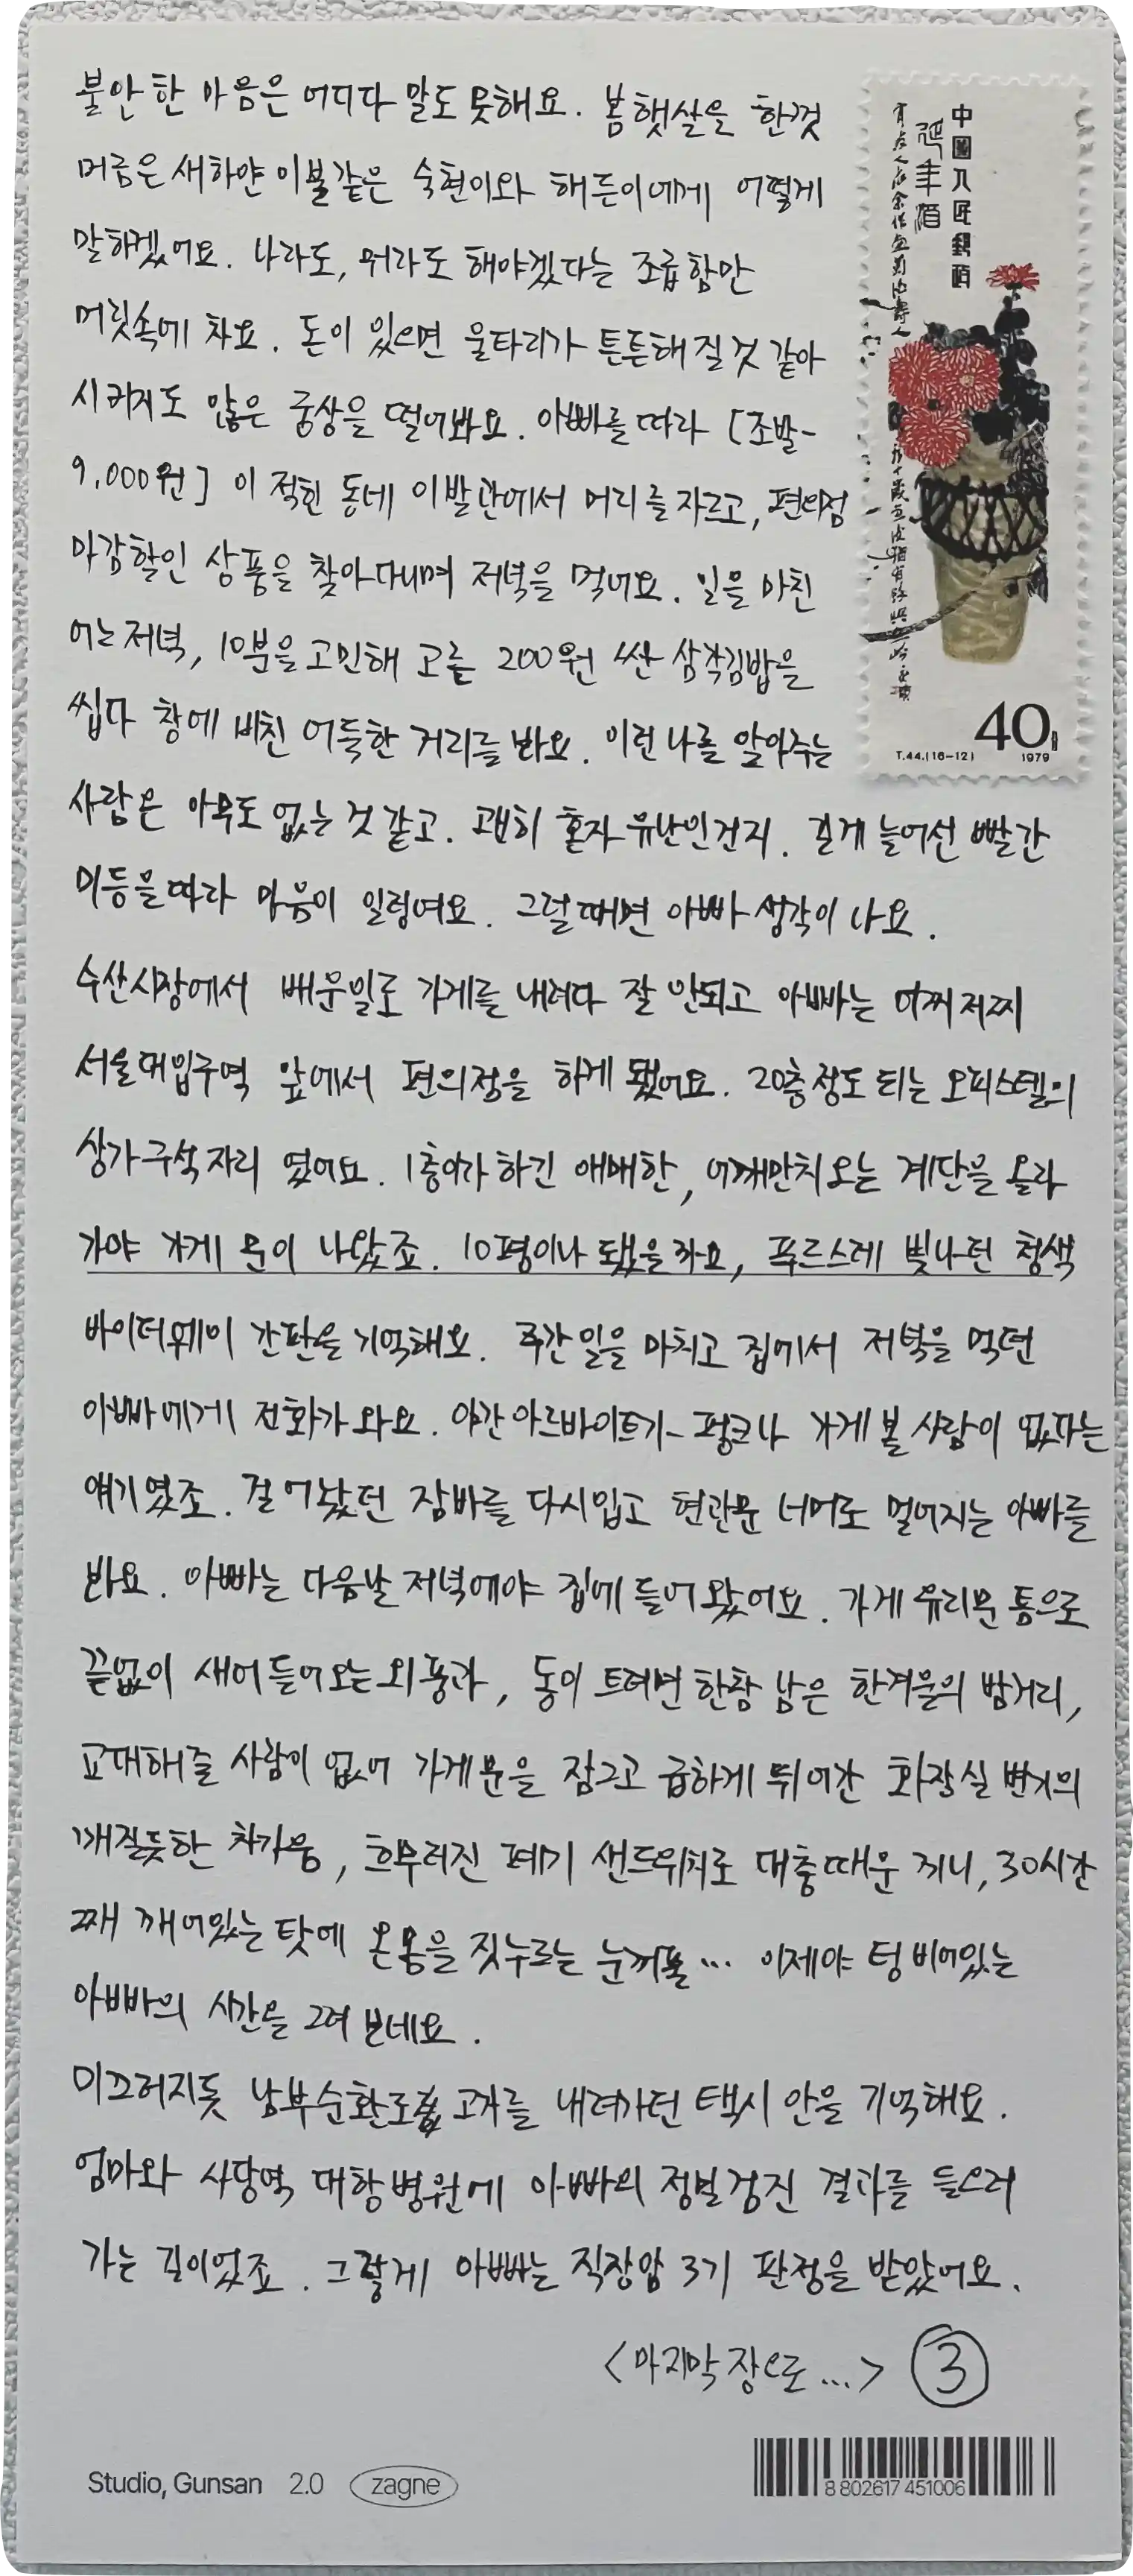 불안한 마음은 어디다 말도 못해요. 봄햇살을 한껏
머금은 새하얀 이불같은 숙현이와 해든이에게 어떻게
말하겠어요. 나라도, 뭐라도 해야겠다는 조급함만
머릿속에 차요. 돈이 있으면 울타리가 튼튼해질것 같아
시키지도 않은 궁상을 떨어봐요. 아빠를 따라 [조발-
9,000원] 이 적힌 동네 이발관에서 머리를 자르고, 편의점
마감할인 상품을 찾아다니며 저녁을 먹어요. 일을 마친
어느 저녁, 10분을 고민해 고른 200원 싼 삼각김밥을
씹다 창에 비친 어둑한 거리를 봐요. 이런 나를 알아주는
사람은 아무도 없는 것 같고. 괜히 혼자 유난인건지. 길게 늘어선 빨간
미등을 따라 마음이 일렁여요. 그럴때면 아빠 생각이 나요.
수산시장에서 배운일로 가게를 내려다 잘 안되고 아빠는 어찌저찌
서울대입구역 앞에서 편의점을 하게 됐어요. 20층 정도 되는 오피스텔의
상가 구석 자리 였어요. 1층이라 하긴 애매한, 어깨만치 오는 계단을 올라
가야 가게 문이 나왔죠. 10평이나 됐을까요, 푸르스레 빛나던 청색
바이더웨이 간판을 기억해요. 주간 일을 마치고 집에서 저녁을 먹던
아빠에게 전화가 와요. 야간 아르바이트가 펑크나 가게 볼 사람이 없다는
얘기였죠. 걸어놨던 잠바를 다시입고 현관문 너머로 멀어지는 아빠를
봐요. 아빠는 다음날 저녁에야 집에 들어왔어요. 가게 유리문 틈으로
끝없이 새어 들어오는 외풍과, 동이 트려면 한참 남은 한겨울의 밤거리,
교대해줄 사람이 없어 가게문을 잠그고 급하게 뛰어간 화장실 변기의
깨질듯한 차가움, 흐무러진 폐기 샌드위치로 대충 때운 끼니, 30시간
째 깨어있는 탓에 온몸을 짓누르는 눈꺼풀... 이제야 텅 비어있는
아빠의 시간을 그려 보네요.
미끄러지듯 남부순환로 고개를 내려가던 택시 안을 기억해요.
엄마와 사당역 대항병원에 아빠의 정밀검진 결과를 들으러
가는 길이었죠. 그렇게 아빠는 직장암 3기 판정을 받았어요.
<마지막 장으로...> ③
中國人民郵政
延年酒
40分
T.44.(16-12) 1979
Studio, Gunsan 2.0 zagne
8 802617 451006